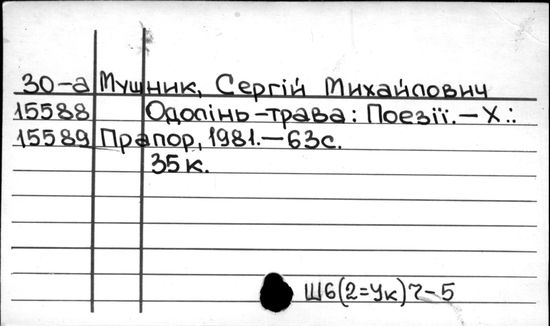 30-а Мушник, Сергій Михайлович
15588 Одолінь-трава: Поезії.-Х.:
15589 Прапор, 1981.-63с.
35к.
Ш6(2=Ук)7-5